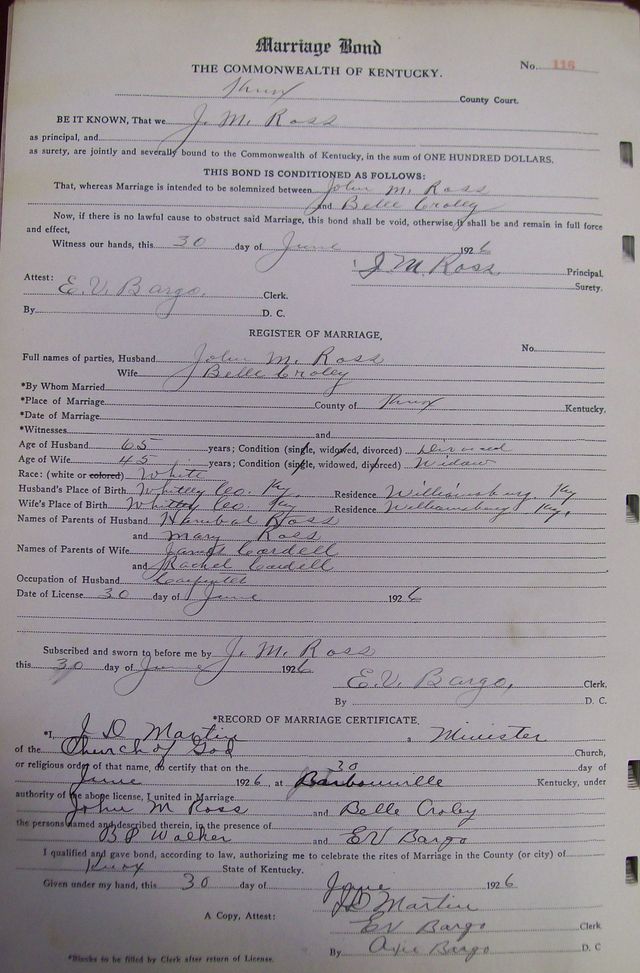 Marriage Bond
No. 116
THE COMMONWEALTH OF KENTUCKY.
Knox County Court.
BE IT KNOWN, That we J. M. Ross
as principal, and
as surety, are jointly and severally bound to the Commonwealth of Kentucky, in the sum of ONE HUNDRED DOLLARS.
THIS BOND IS CONDITIONED AS FOLLOWS:
That, whereas Marriage is intended to be solemnized between John M. Ross
and Belle Croley
Now, if there is no lawful cause to obstruct said Marriage, this bond shall be void, otherwise it shall be and remain in full force
and effect,
Witness our hands, this 30 day of June 1926
J M Ross Principal.
Surety.
Attest:
E. V. Bargo. Clerk.
By D. C.
REGISTER OF MARRIAGE,
No.
Full names of parties, Husband John M. Ross
Wife Belle Croley
*By Whom Married
*Place of Marriage County of Knox Kentucky.
*Date of Marriage
*Witnesses and
Age of Husband 65 years; Condition (single, widowed, divorced) Divorced
Age of Wife 45 years; Condition (single, widowed, divorced) Widow
Race: (white or colored) White
Husband's Place of Birth Whitley Co. Ky. Residence Williamsburg, Ky
Wife's Place of Birth Whitley Co. Ky Residence Williamsburg Ky.
Names of Parents of Husband Ross
and Mary Ross
Names of Parents of Wife James Cordell
and Rachel Cordell
Occupation of Husband Carpenter
Date of License 30 day of June 1926
Subscribed and sworn to before me by J. M. Ross
this 30 day of June 1926
E. V. Bargo, Clerk,
By D. C.
*RECORD OF MARRIAGE CERTIFICATE,
*I, J D Martin a Minister
of the Church of God Church,
or religious order of that name, do certify that on the 30 day of
June 1926, at Barbourville Kentucky, under
authority of the above license, I united in Marriage
John M Ross and Belle Croley
the persons named and described therein, in the presence of
B P Walker and E V Bargo
I qualified and gave bond, according to law, authorizing me to celebrate the rites of Marriage in the County (or city) of
Knox State of Kentucky.
Given under my hand, this 30 day of June 1926
J D Martin
A Copy, Attest: E V Bargo Clerk
By Bargo D. C
*Blanks to be filled by Clerk after return of License.